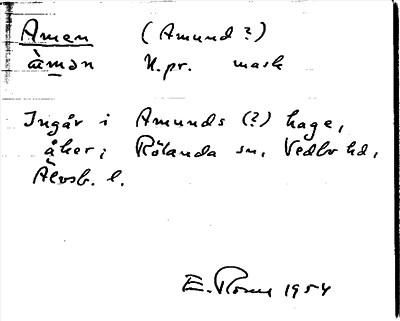 Aman (Amund ?)
àmən N.pr. mask
Ingår i Amunds (?) hage,
åker, Rölanda sn, Vedbo hd,
Älvsb. l.
E. 1954